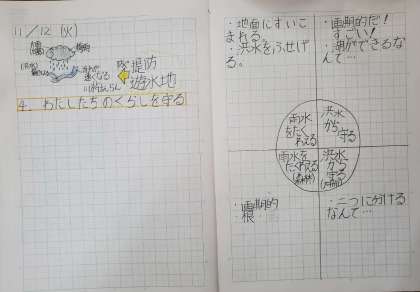 11/12 (火)
堤防
遊水地
4. わたしたちのくらしを守る
・地面にすいこ
まれる。
・洪水をふせげ
る。
・画期的だ!
すごい!
・湖ができるな
んて…
雨水
をたく
わえる
洪水
から
守る
雨水を
たくわえる
洪水
から
守る
・画期的
・根
・二つに分ける
なんて…